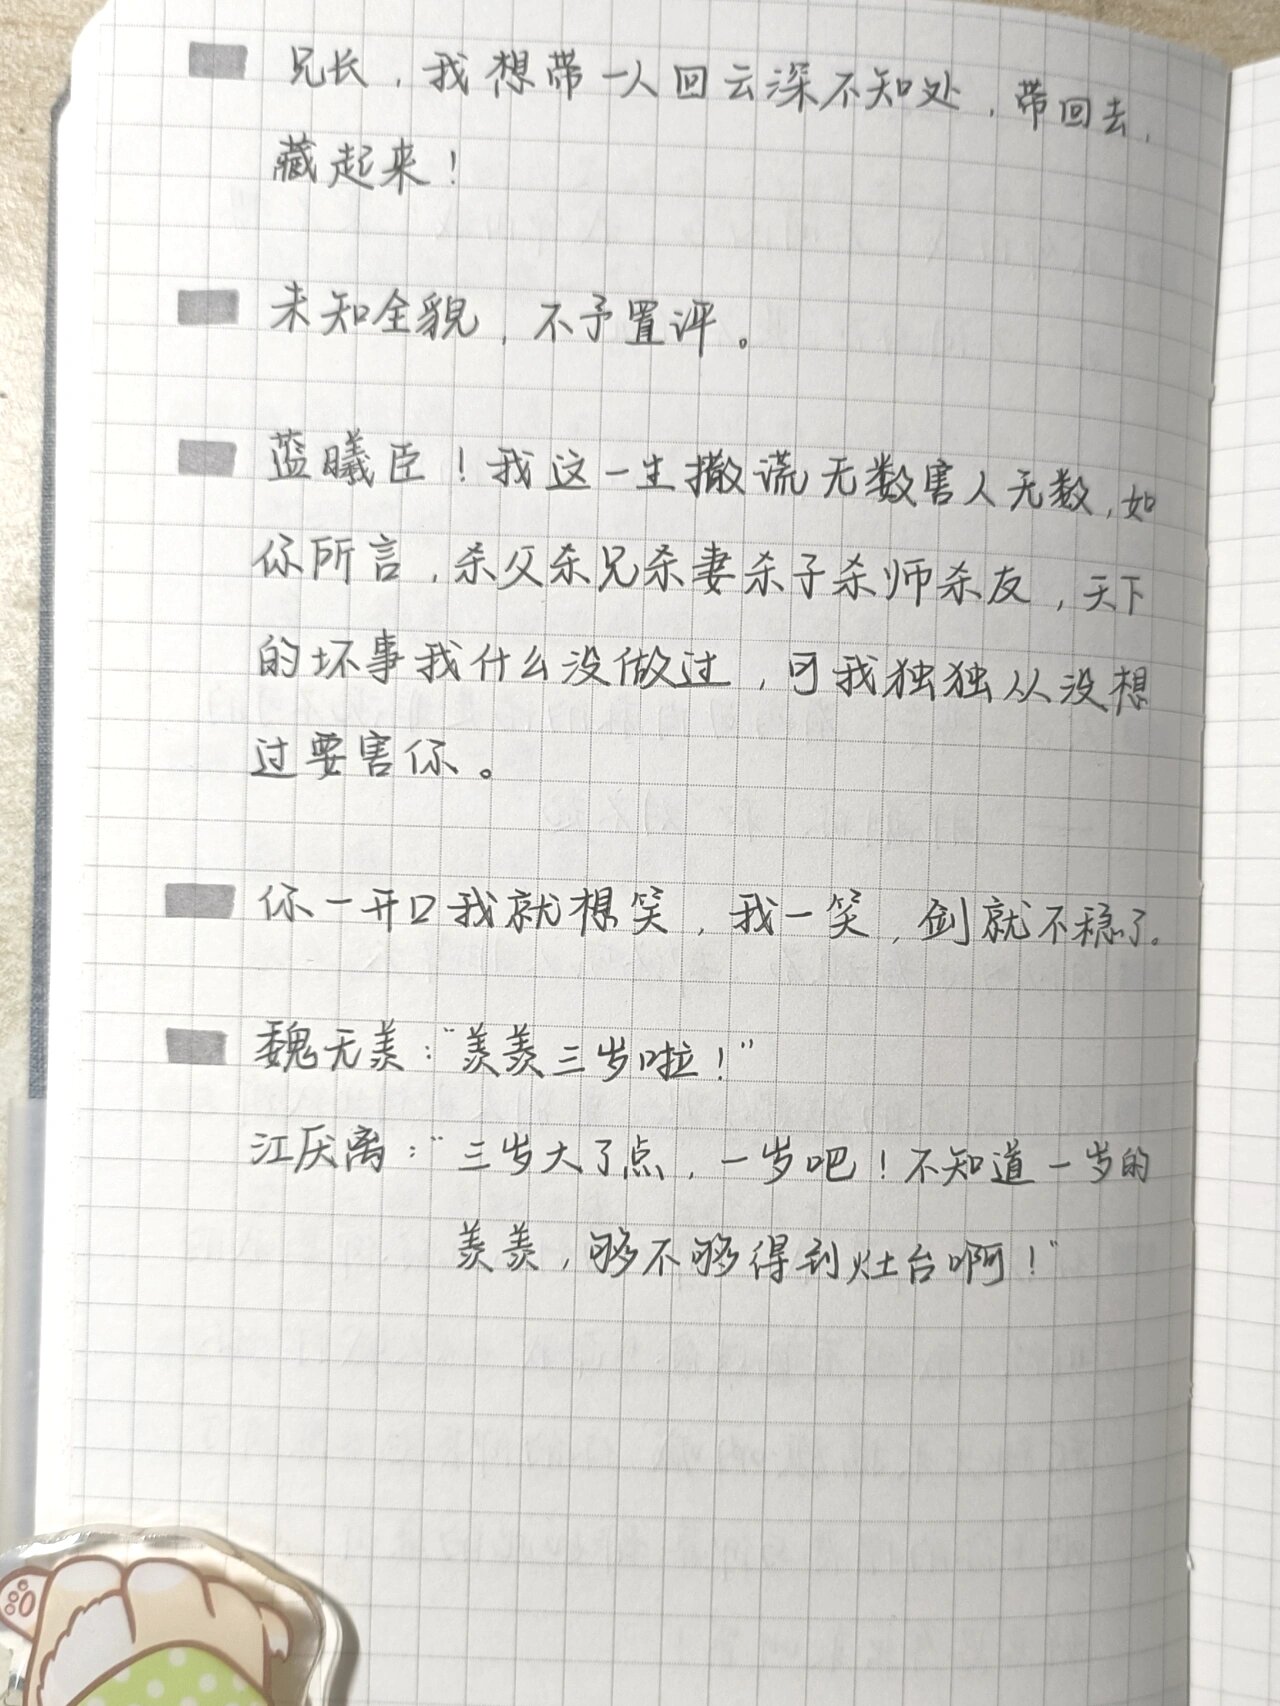 兄长，我想带一人回云深不知处，带回去，
藏起来！
未知全貌，不予置评。
蓝曦臣！我这一生撒谎无数害人无数，如
你所言，杀父杀兄杀妻杀子杀师杀友，天下
的坏事我什么没做过，可我独独从没想
过要害你。
你一开口我就想笑，我一笑，剑就不稳了。
魏无羡："羡羡三岁啦！"
江厌离："三岁大了点，一岁吧！不知道一岁的
羡羡，够不够得到灶台啊！"